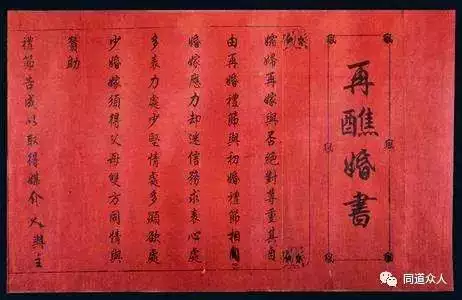 再醮婚書
孀婦再嫁與否絕對尊重其自
由再婚禮節與初婚禮節相同
婚嫁應力却迷信務求衷心處
多衷力處少堅情處多顧欲處
少婚嫁須得父母雙方同情與
贊助
禮節告成以取得媒介人主
同道众人